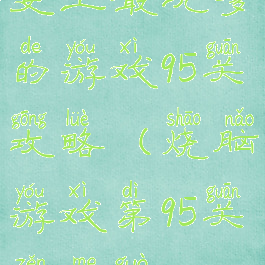 de yóu xì guān
的游戏95关
gōng lüè shāo nǎo
攻略（烧脑
yóu xì dì guān
游戏第95关
zěn me guò